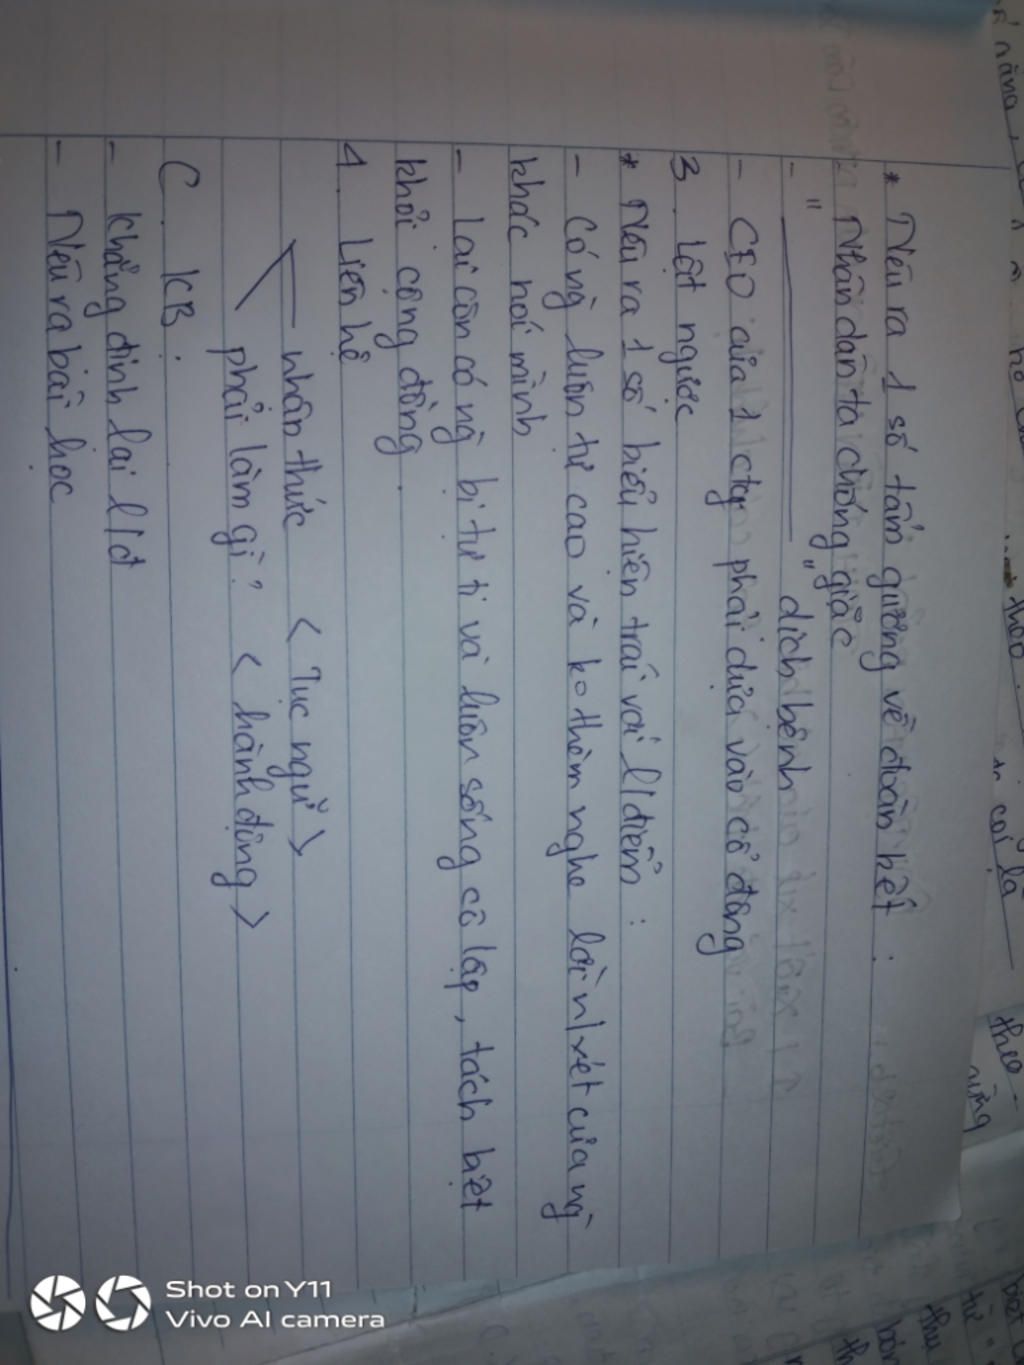 * Nêu ra 1 số tấm gương về đoàn kết :
- Nhân dân ta chống giặc
- " ———— " dịch bệnh
- CEO của 1 cty phải dựa vào cổ đông
3. Lật ngược
* Nêu ra 1 số biểu hiện trái với l/điểm :
- Có ng` luôn tự cao và ko thèm nghe lời n/xét của ng`
khác nói mình
- Lại còn có ng` bị tự ti và luôn sống cô lập, tách biệt
khỏi cộng đồng.
4. Liên hệ
nhận thức < Tục ngữ >
phải làm gì? < hành động >
C. KB :
- Khẳng định lại l/đ
- Nêu ra bài học
Shot on Y11
Vivo AI camera